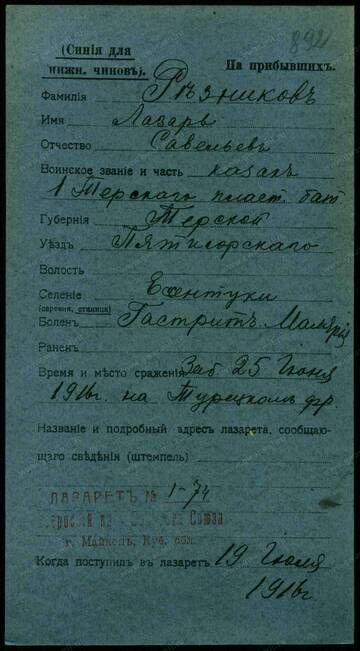 892
(Синія для
нижн. чиновъ).
На прибывшихъ.
Фамилія Рѣзниковъ
Имя Лазарь
Отчество Савельевъ
Воинское званіе и часть казакъ
1 Терскаго пласт. бат.
Губернія Терской
Уѣздъ Пятигорскаго
Волость
Селеніе Есентуки
(деревня, станица)
Боленъ Гастритъ. Малярія
Раненъ
Время и мѣсто сраженія Заб. 25 Іюня
1916г. на Турецкомъ фр.
Названіе и подробный адресъ лазарета, сообщаю-
щаго свѣдѣнія (штемпель)
ЛАЗАРЕТЪ № 1-74
Союза
г. Майкопъ, Куб. обл.
Когда поступилъ въ лазаретъ 19 Іюля
1916г.